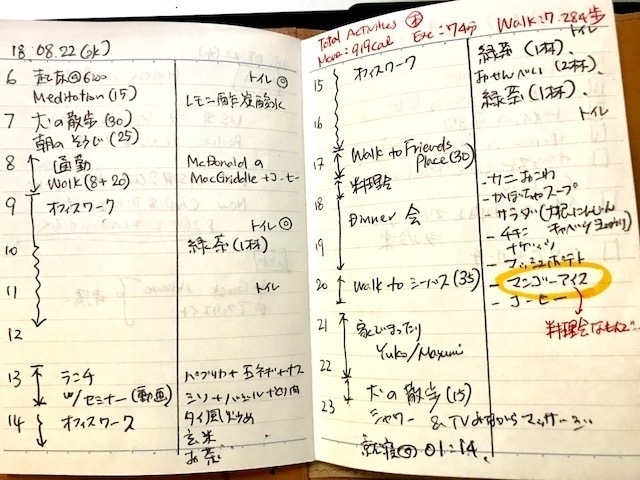 18.08.22(水)
6 起床@6:00 トイレ◎
Meditation (15) レモン酢炭酸水
7 犬の散歩 (30)
朝のそうじ (25)
8 通勤 McDonaldの
Walk (8+20) MacGriddle+コーヒー
9 オフィスワーク
トイレ◎
10 緑茶(1杯)
11 トイレ
12
13 ランチ パプリカ+玉ネギ+ナス
w/セミナー(動画)
14 オフィスワーク タイ風炒め
玄米
お茶
Total Activities
Move:919cal Exc:74分 Walk:7.284歩
トイレ
15 オフィスワーク 緑茶(1杯)、
おせんべい(2杯)、
16 緑茶(1杯)
トイレ
17 Walk to Friends
Place(30)
料理会
18 - かぼちゃスープ
Dinner 会 - サラダ
- チキン
19 ナゲッツ
- マッシュポテト
20 Walk to シーバス(35) - マンゴーアイス
- コーヒー
21 家でまったり
Yuko/Mayumi
22
犬の散歩(15)
23 シャワー & TVみながらマッサージ
就寝@01:14